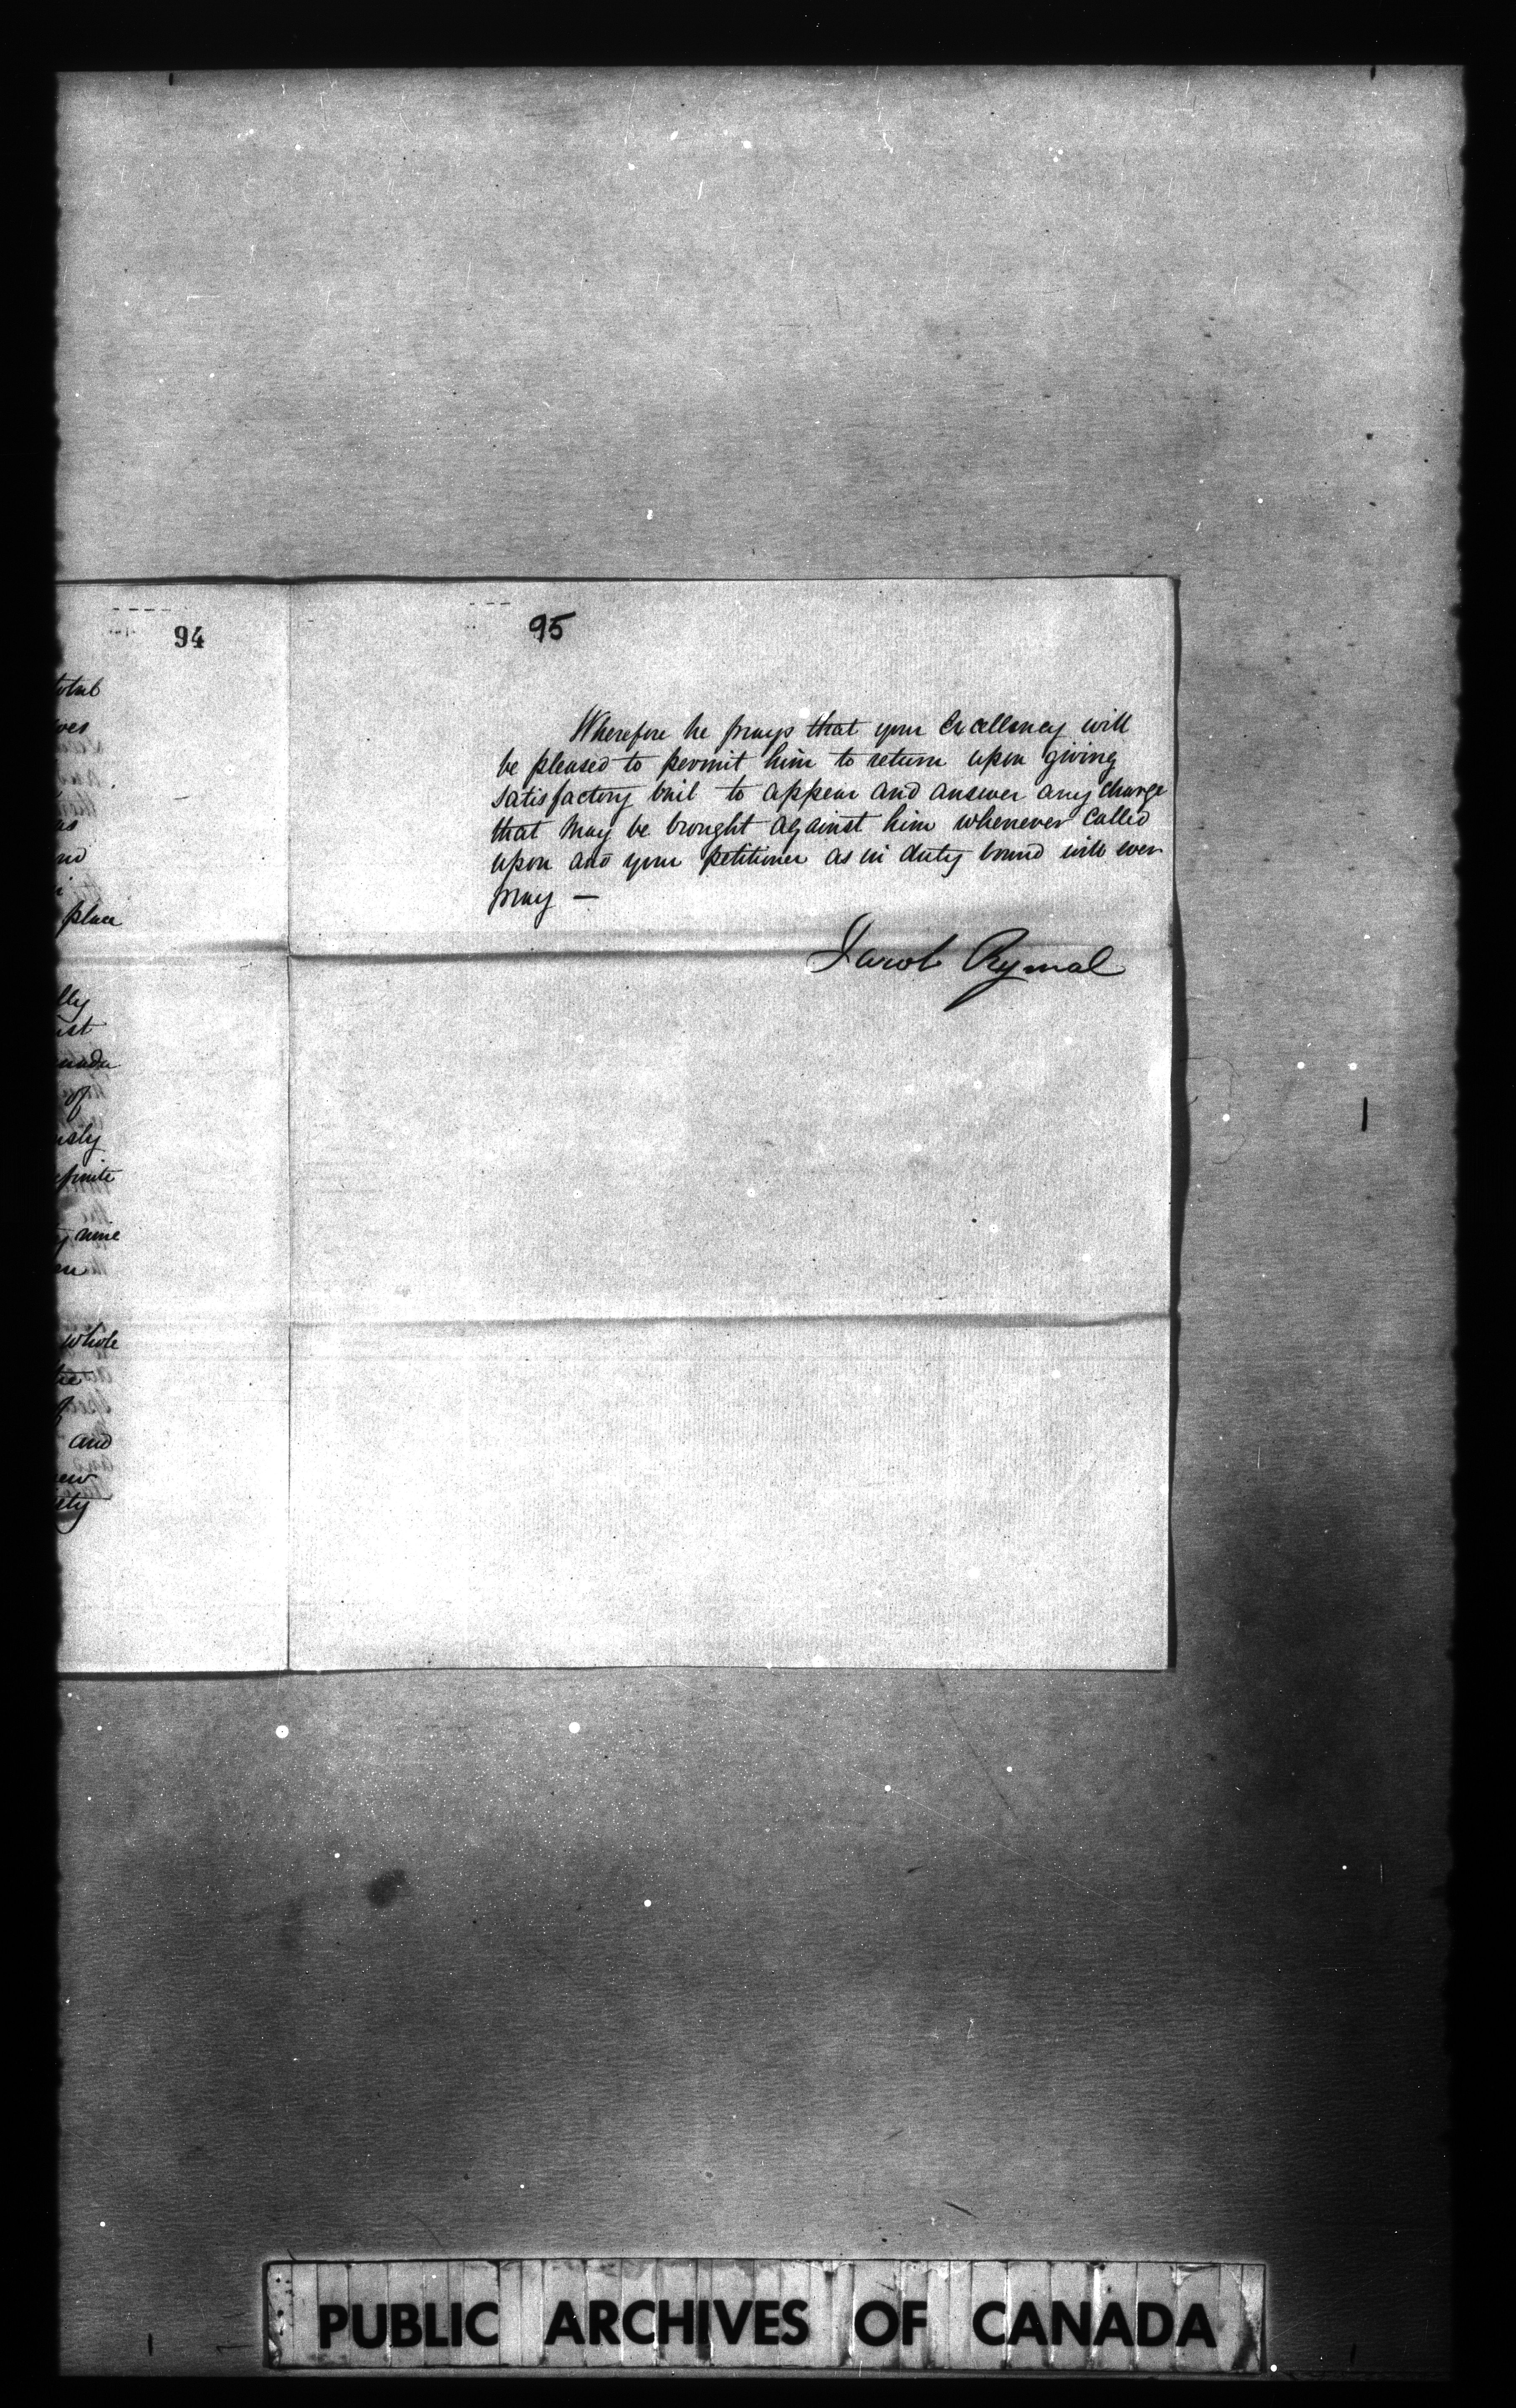 94
place
of
nine
whole
and
95
Wherefore he prays that your Excellency will
be pleased to permit him to return upon giving
satisfactory bail to appear and answer any charge
that may be brought against him whenever called
upon and your petitioner as in duty bound will ever
pray —
Jacob Rymal
PUBLIC ARCHIVES OF CANADA